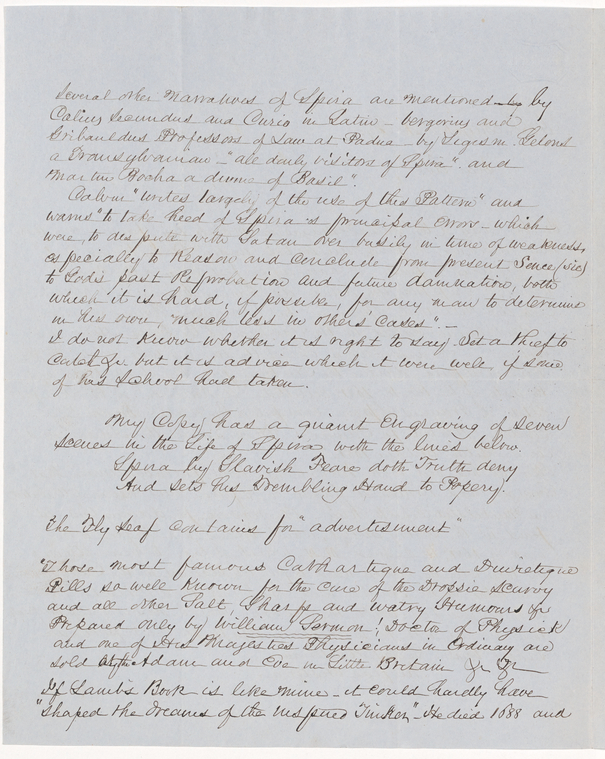 Several other Narratives of Spira are mentioned by
Calius Secundus and Curio in Latin - Vergerius and
Gribauldus Professors of Law at Padua - by Sigesm. Gelons
a Transylvanian - "all daily visitors of Spira". and
Martin Borha a divine of Basil".
Calvin "writes largely of the use of this Pattern" and
warns "to take heed of Spira's principal Errors - which
were, to dispute with Satan over busily in time of weakness,
especially to Reason and conclude from present Sence (sic)
to God's past Reprobation and future damnation, both
which it is hard, if possible, for any man to determine
in his own, much less in others' Cases". -
I do not Know whether it is right to say Set a thief to
Catch &c but it is advice which it were well if some
of his School had taken.
My Copy has a quaint Engraving of Seven
Scenes in the Life of Spira with the lines below.
Spira by Slavish Feare doth Truth deny
And Sets his Trembling Hand to Popery.
The Fly Leaf contains for "advertisment"
"Those most famous Cathartique and Diuretique
Pills so well Known for the cure of the Dropsie Scurvy
and all other Salt, Sharp and watry Humours &c
Prepared only by William Sermon! Doctor of Physick
and one of His Majesties Physicians in Ordinary are
sold at the Adam and Eve in Little Britain &c &c
If Lamb's Book is like mine - it could hardly have
"shaped the dreams of the inspired Tinker" - He died 1688 and